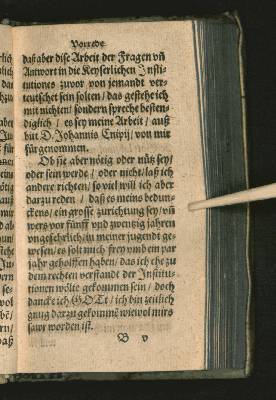 Vorrede
daß aber dise Arbeit der Fragen vñ
Antwort in die Keyserlichen Insti-
tutiones zuvor von jemandt ver-
teutschet sein solten / das gestehe ich
mit nichten / sondern sprecht besten-
diglich / es sey meine Arbeit / auß
bitt D. Johannis Cnipij / von mir
fürgenommen.
Ob sie aber nötig oder nütz sey /
oder sein werde / oder nicht / laß ich
andere richten / so viel will ich aber
darzu reden / daß es meines bedun-
ckens / ein grosse zurichtung sey / vñ
wers vor fünff vnd zwentzig jahren
vngefehrlich / in meiner jugendt ge-
wesen / es solt mich frey vmb ein par
jahr geholffen haben / das ich ehe zu
dem rechten verstandt der Institu-
tionen wölte gekommen sein / doch
dancke ich GOTt / ich bin zeitlich
gnug darzu gekommē wiewol mirs
sawr worden ist.
B v